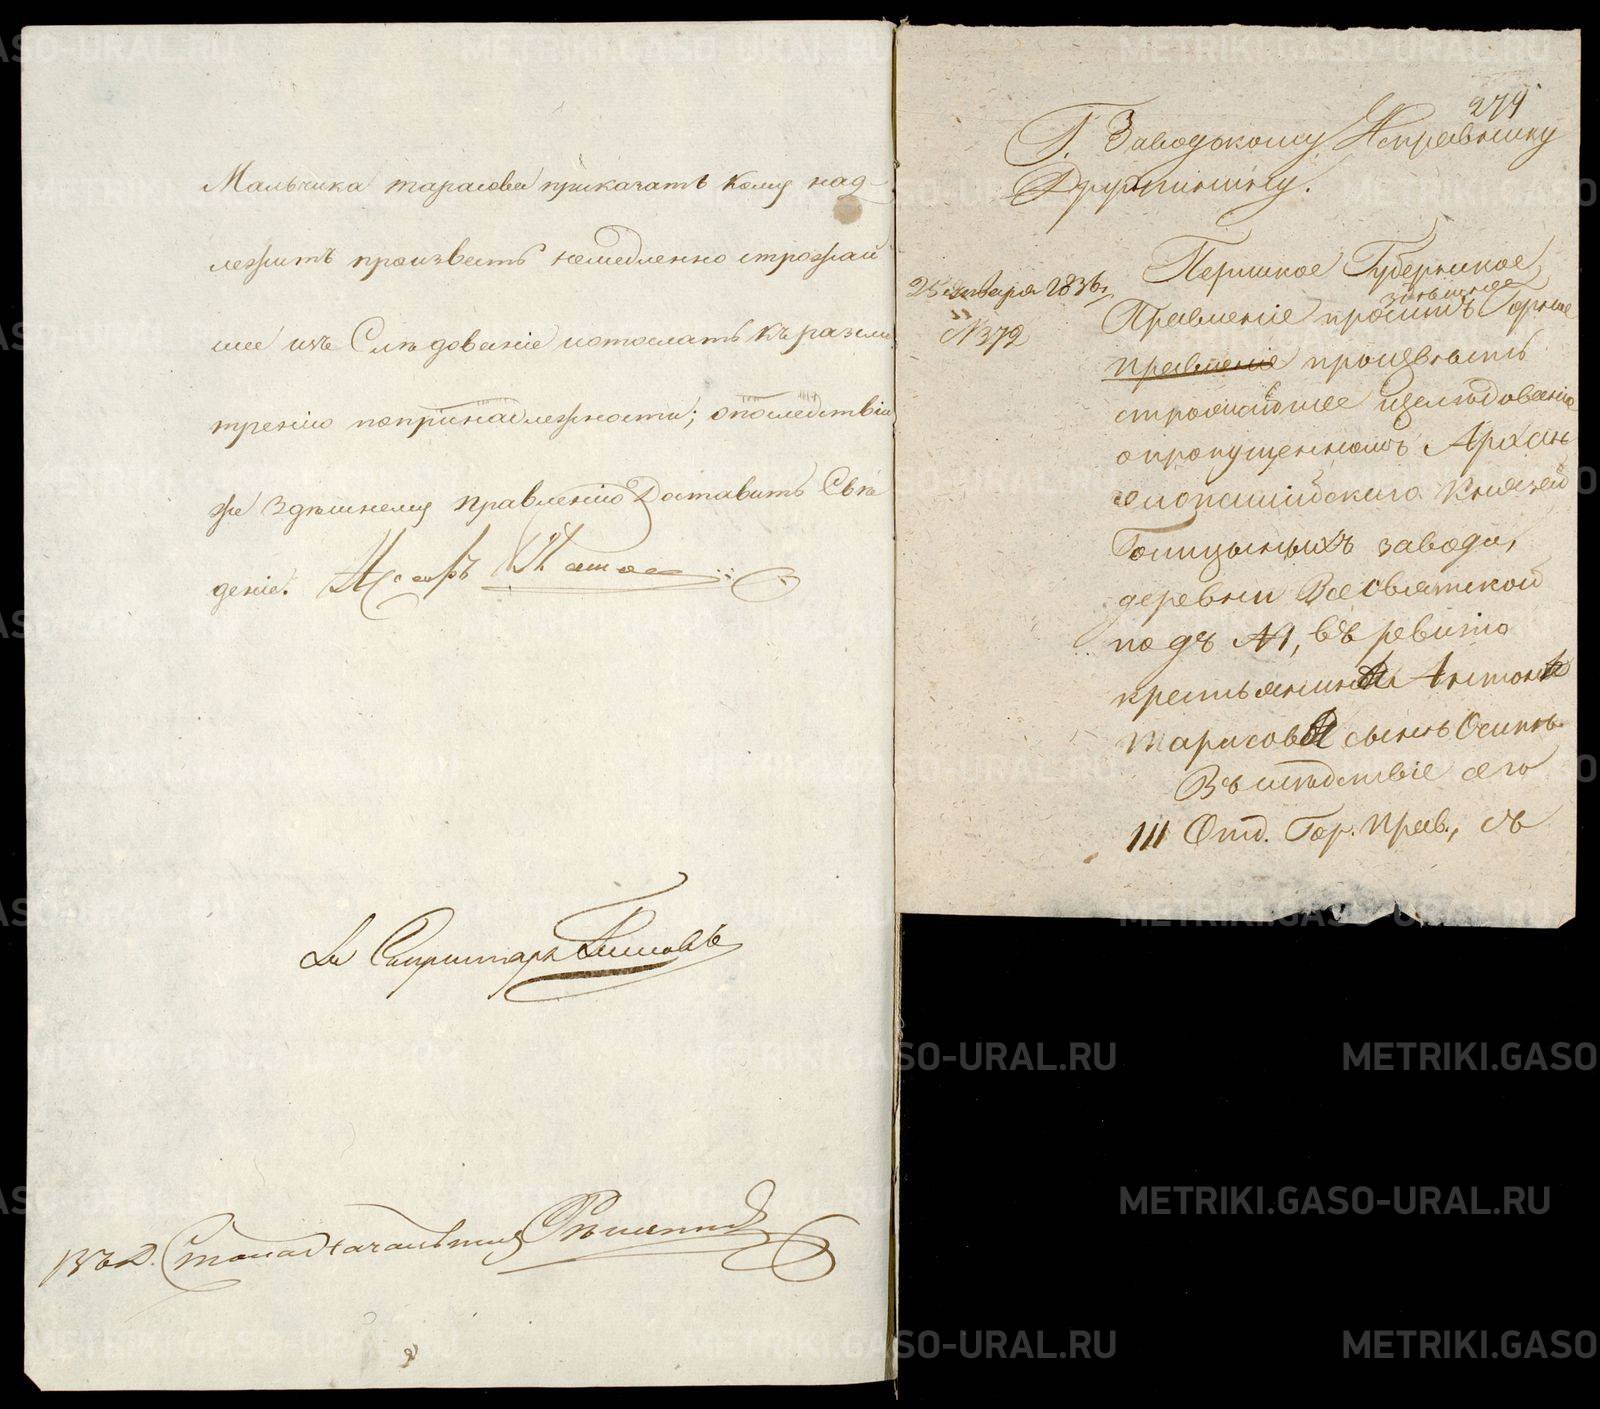 Мальчика тарасова приказать кому над-
лежитъ произвесть немедленно строжай
шее изъ Слѣдованіе и отослать къ разсмо
трѣнію попринадлежности; опоследствіи
же Здѣшнему правленію Доставить Свѣ
деніе.
Секретарь
Столоначальника
274
Г. Заводскому Исправнику
25 января 1836 г.
№ 372
Пермское Губернское
здѣшнее
Правленіе проситъ Горное
правленіе произвесть
строжайшее изслѣдованіе
опропущенномъ Архан
гелопашійскаго Князей
Голицыныхъ завода,
деревни Всесвятской
подъ №1, въ ревизію
крестьянина Антона
Тарасова сынъ Осипъ.
Въ слѣдствіе сего
III Отд. Гор. Прав., съ
METRIKI.GASO-URAL.RU